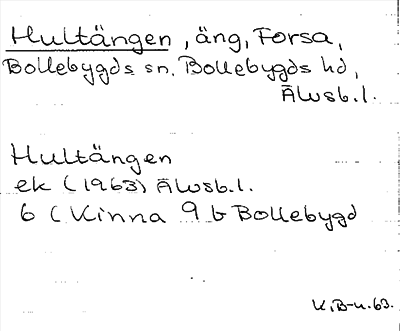 Hultängen, äng, Forsa,
Bollebygds sn. Bollebygds hd,
Älvsb.l.
Hultängen
ek (1963) Älvsb.l.
6 C Kinna 9 b Bollebygd
K.B-n.63.